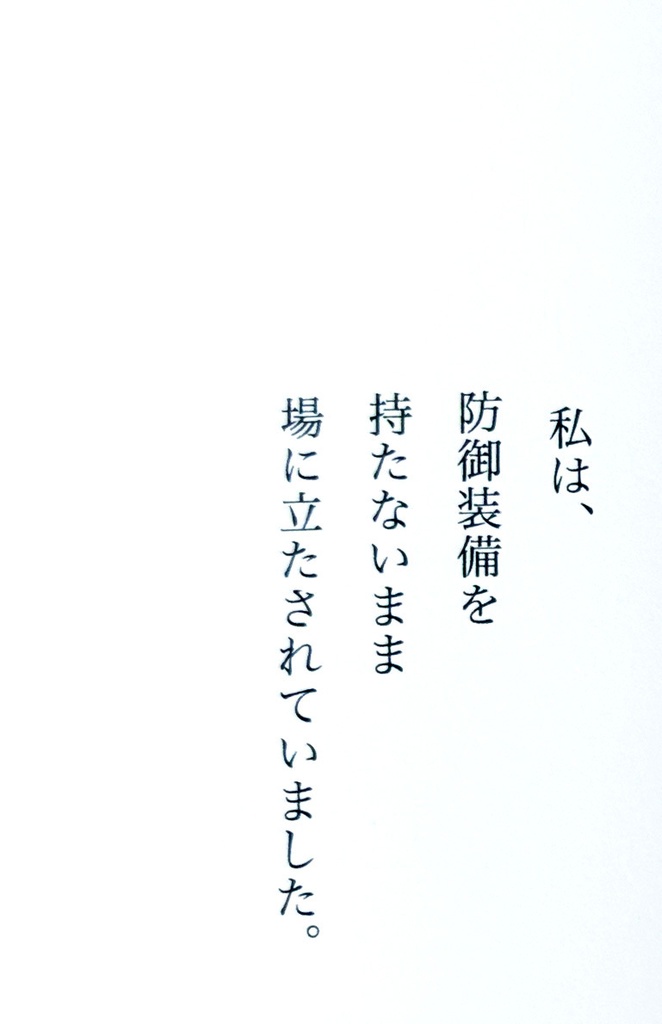 私は、
防御装備を
持たないまま
場に立たされていました。